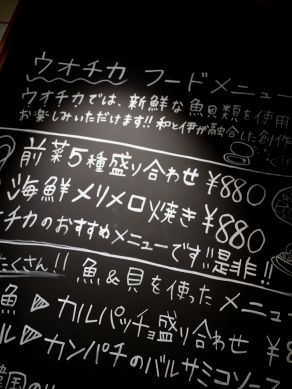 ウオチカ フードメニュー
ウオチカでは、新鮮な魚貝類を使用
お楽しみいただけます!! 和と伊が融合した創作
前菜5種盛り合わせ ¥880
海鮮メリメロ焼き ¥880
オチカのおすすめメニューです!!是非!!
たくさん!! 魚&貝を使ったメニュー
魚▷カルパッチョ盛り合わせ ¥8
ル▷カンパチのバルサミコソース